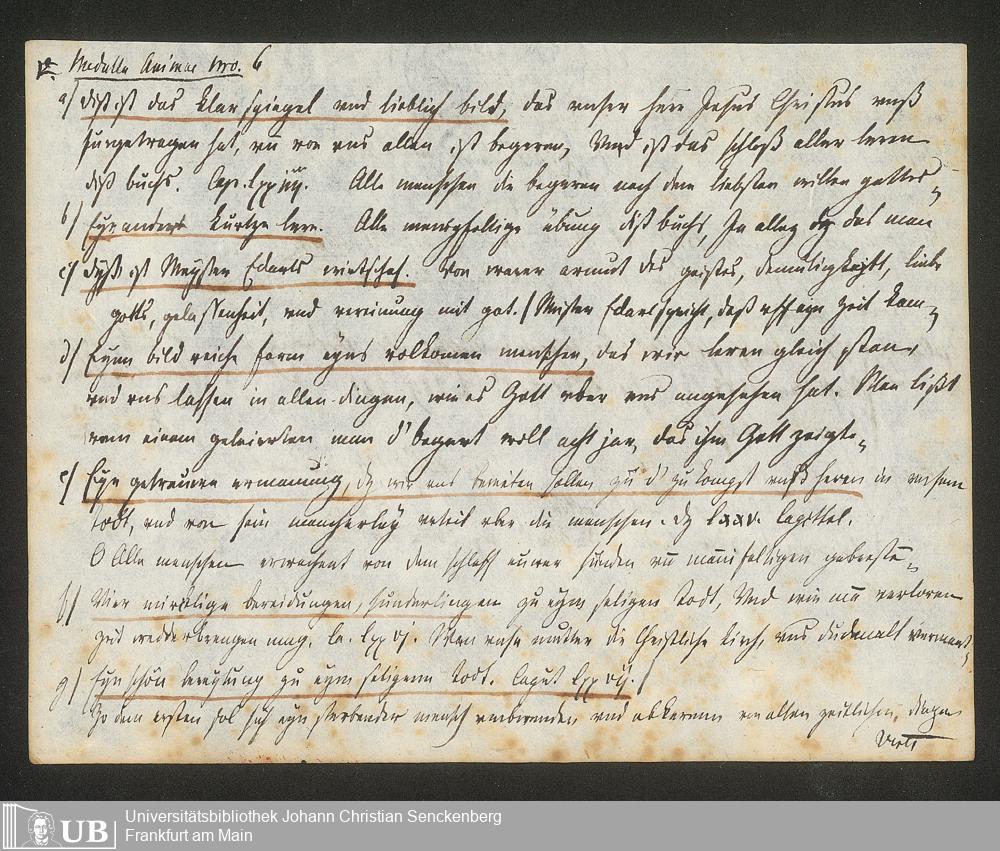 Medulla Animae Nro. 6
a/ disß ist das klar spiegel vnd lieblich bild, das vnser herr Jesus Christus vnß
furgetragen hat, vñ von vns allen ist begeren, Vnd ist das schloß aller leren
diß buchs. Cap. Lxxiiij. Alle menschen die begeren nach dem liebsten willen gottes
b/ Eyn ander kurtze lere. Alle mennigfeltige übung diß buchs, Ja alles dz das man
c/ Dyß ist Meyster Eckarts wirtschaf. Von warer armut des geistes, demutigkeyt, liebe
gotts, gelassenheit, vnd vereinung mit got. / Meister Eckart spricht, daß vff eyn zeit kam
d/ Eynn bild reiche form eyns volkomen menschen, das wir leren gleich stan,
vnd vns lassen in allen dingen, wie es Gott vber vns angesehen hat. Man lißt
vonn einem gelerten man d' begert woll acht jar, das ihm Gott zeigte
e/ Eyn getrauwe ermanung, dz wir vns bereiten sollen zu d' zukompst vnsß heren in vnserm
todt, vnd von sein mancherley vrteil vber die menschen. dz Lxxv. Capittel.
O Alle menschen erwachent von dem schlaff euwer sunden vñ manifeltigen gebresten
f/ Vier mircklige bereidungen, sunderlingen zu eynm seligen todt, Vnd wie mã verloren
zeit wedderbrengen mag. Ca. Lxxvj. Wan vnse mutter die Christliche kirch, vns dickmalt vermant,
g/ Eyn schön bereytung zu eynm seligenn todt. Caput Lxxvij. /
Zo dem ersten sol sich eyn sterbender mensch entwenden vnd abkerenn von allen zeitlichen dingen
Viels
UB
Universitätsbibliothek Johann Christian Senckenberg
Frankfurt am Main